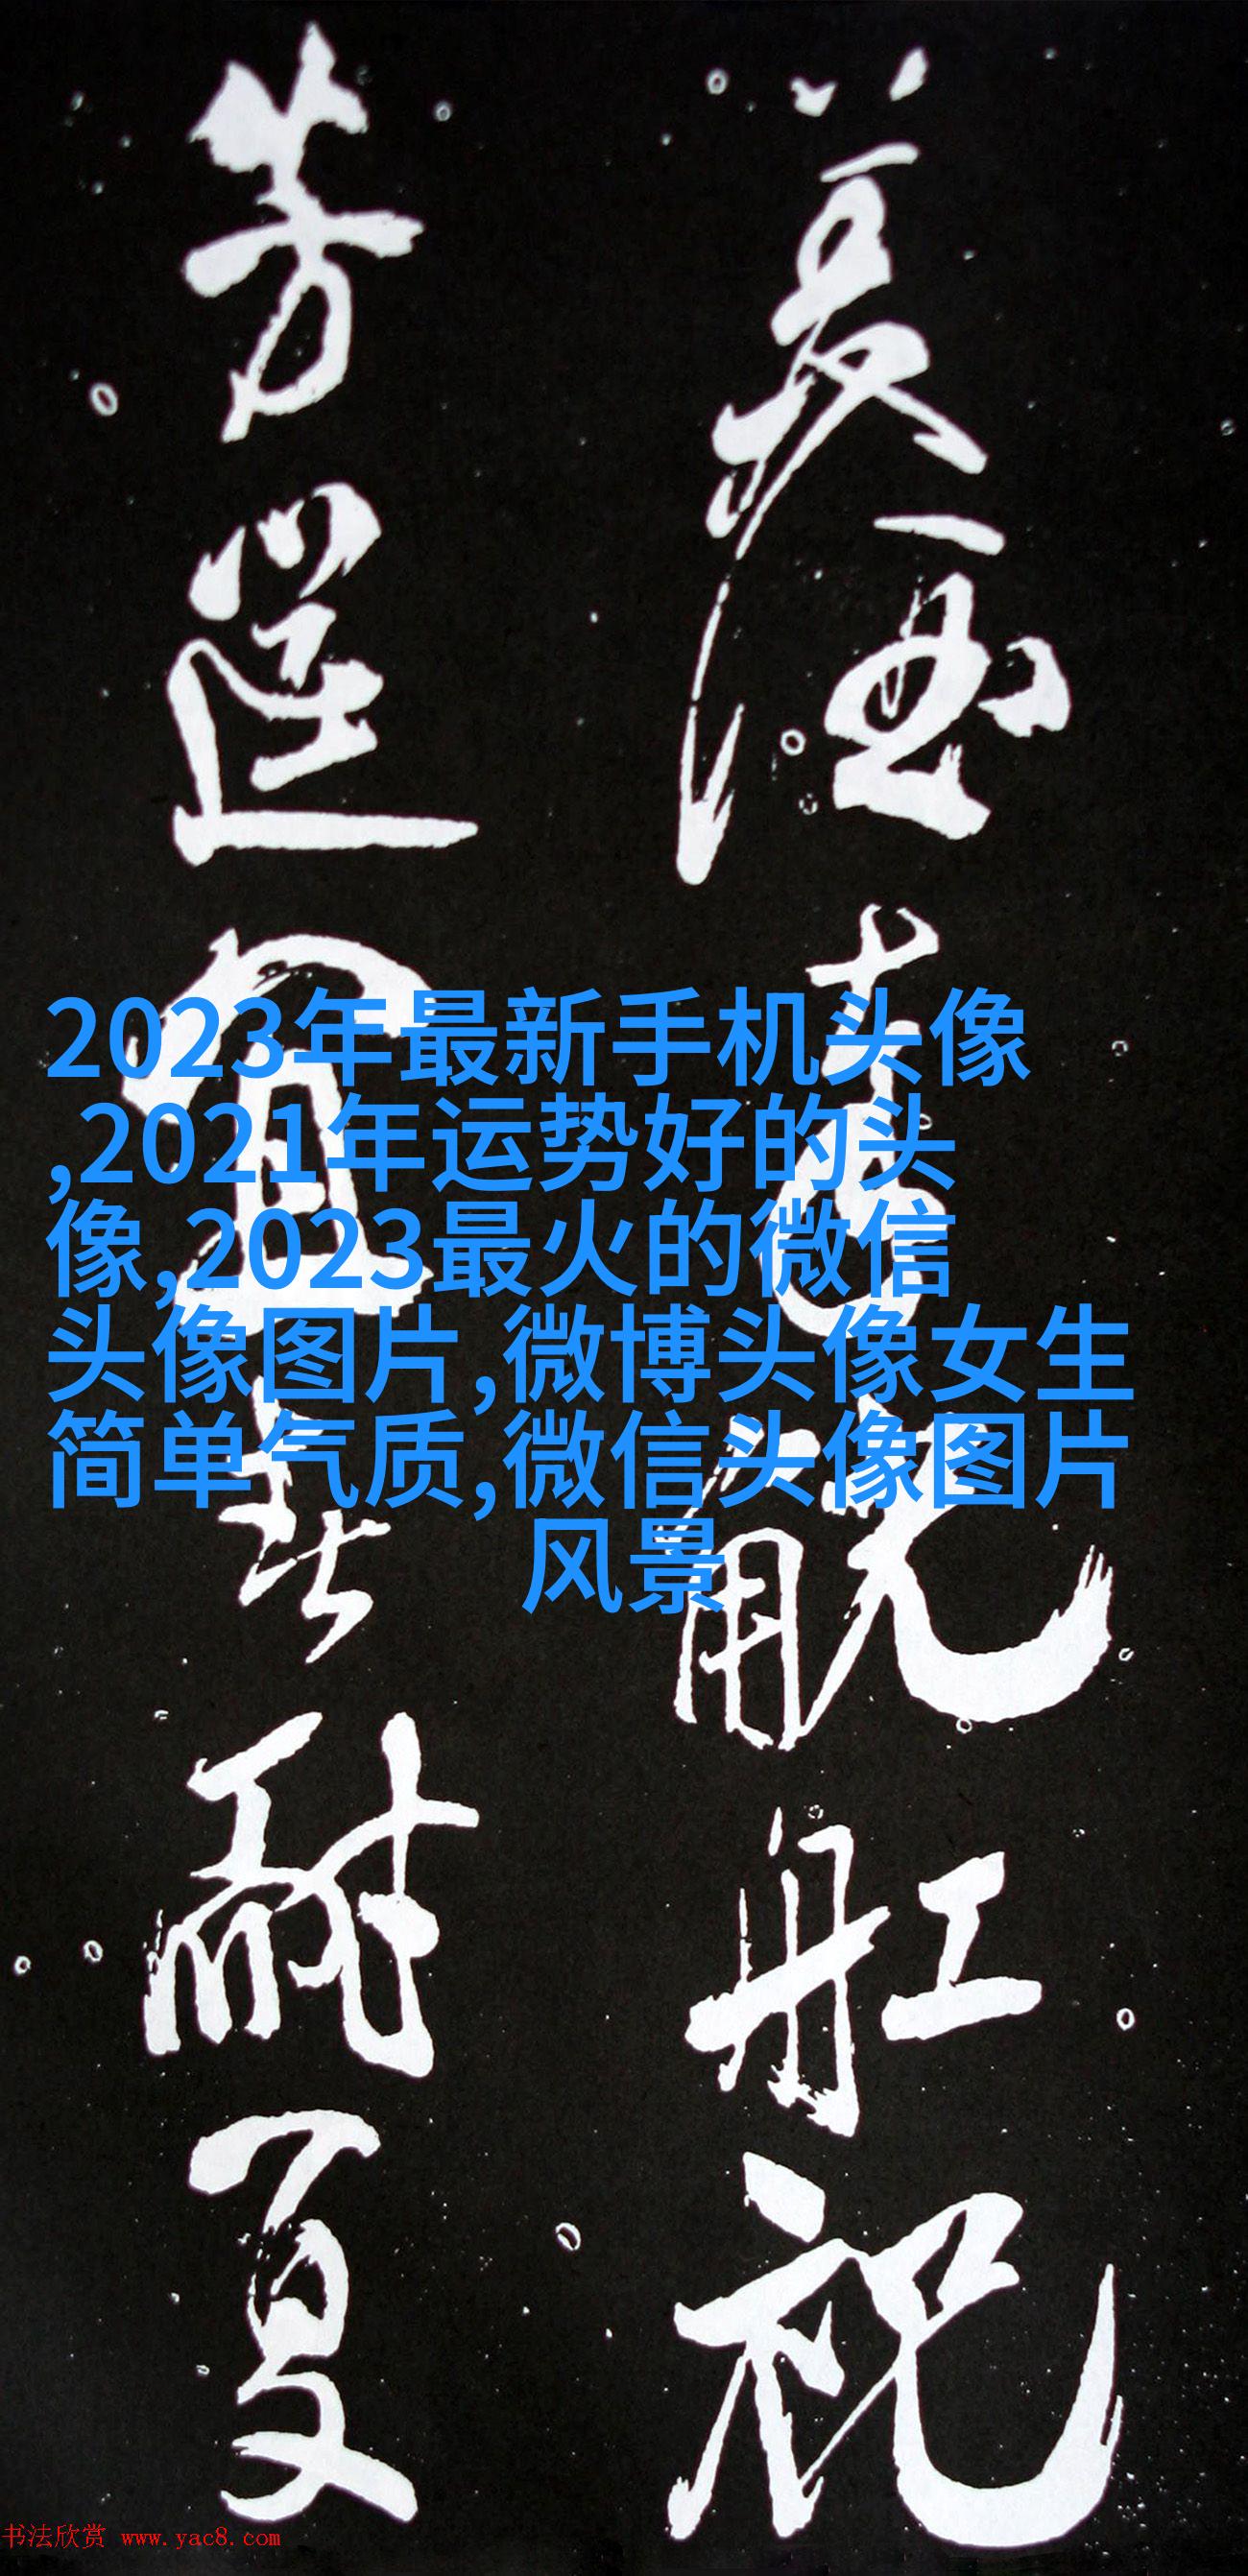 2023年最新手机头像
,2021年运势好的头
像,2023最火的微信
头像图片,微博头像女生
简单气质,微信头像图片
风景
酒觥舡祝
芳筵耐夏
书法欣赏 www.yac8.com